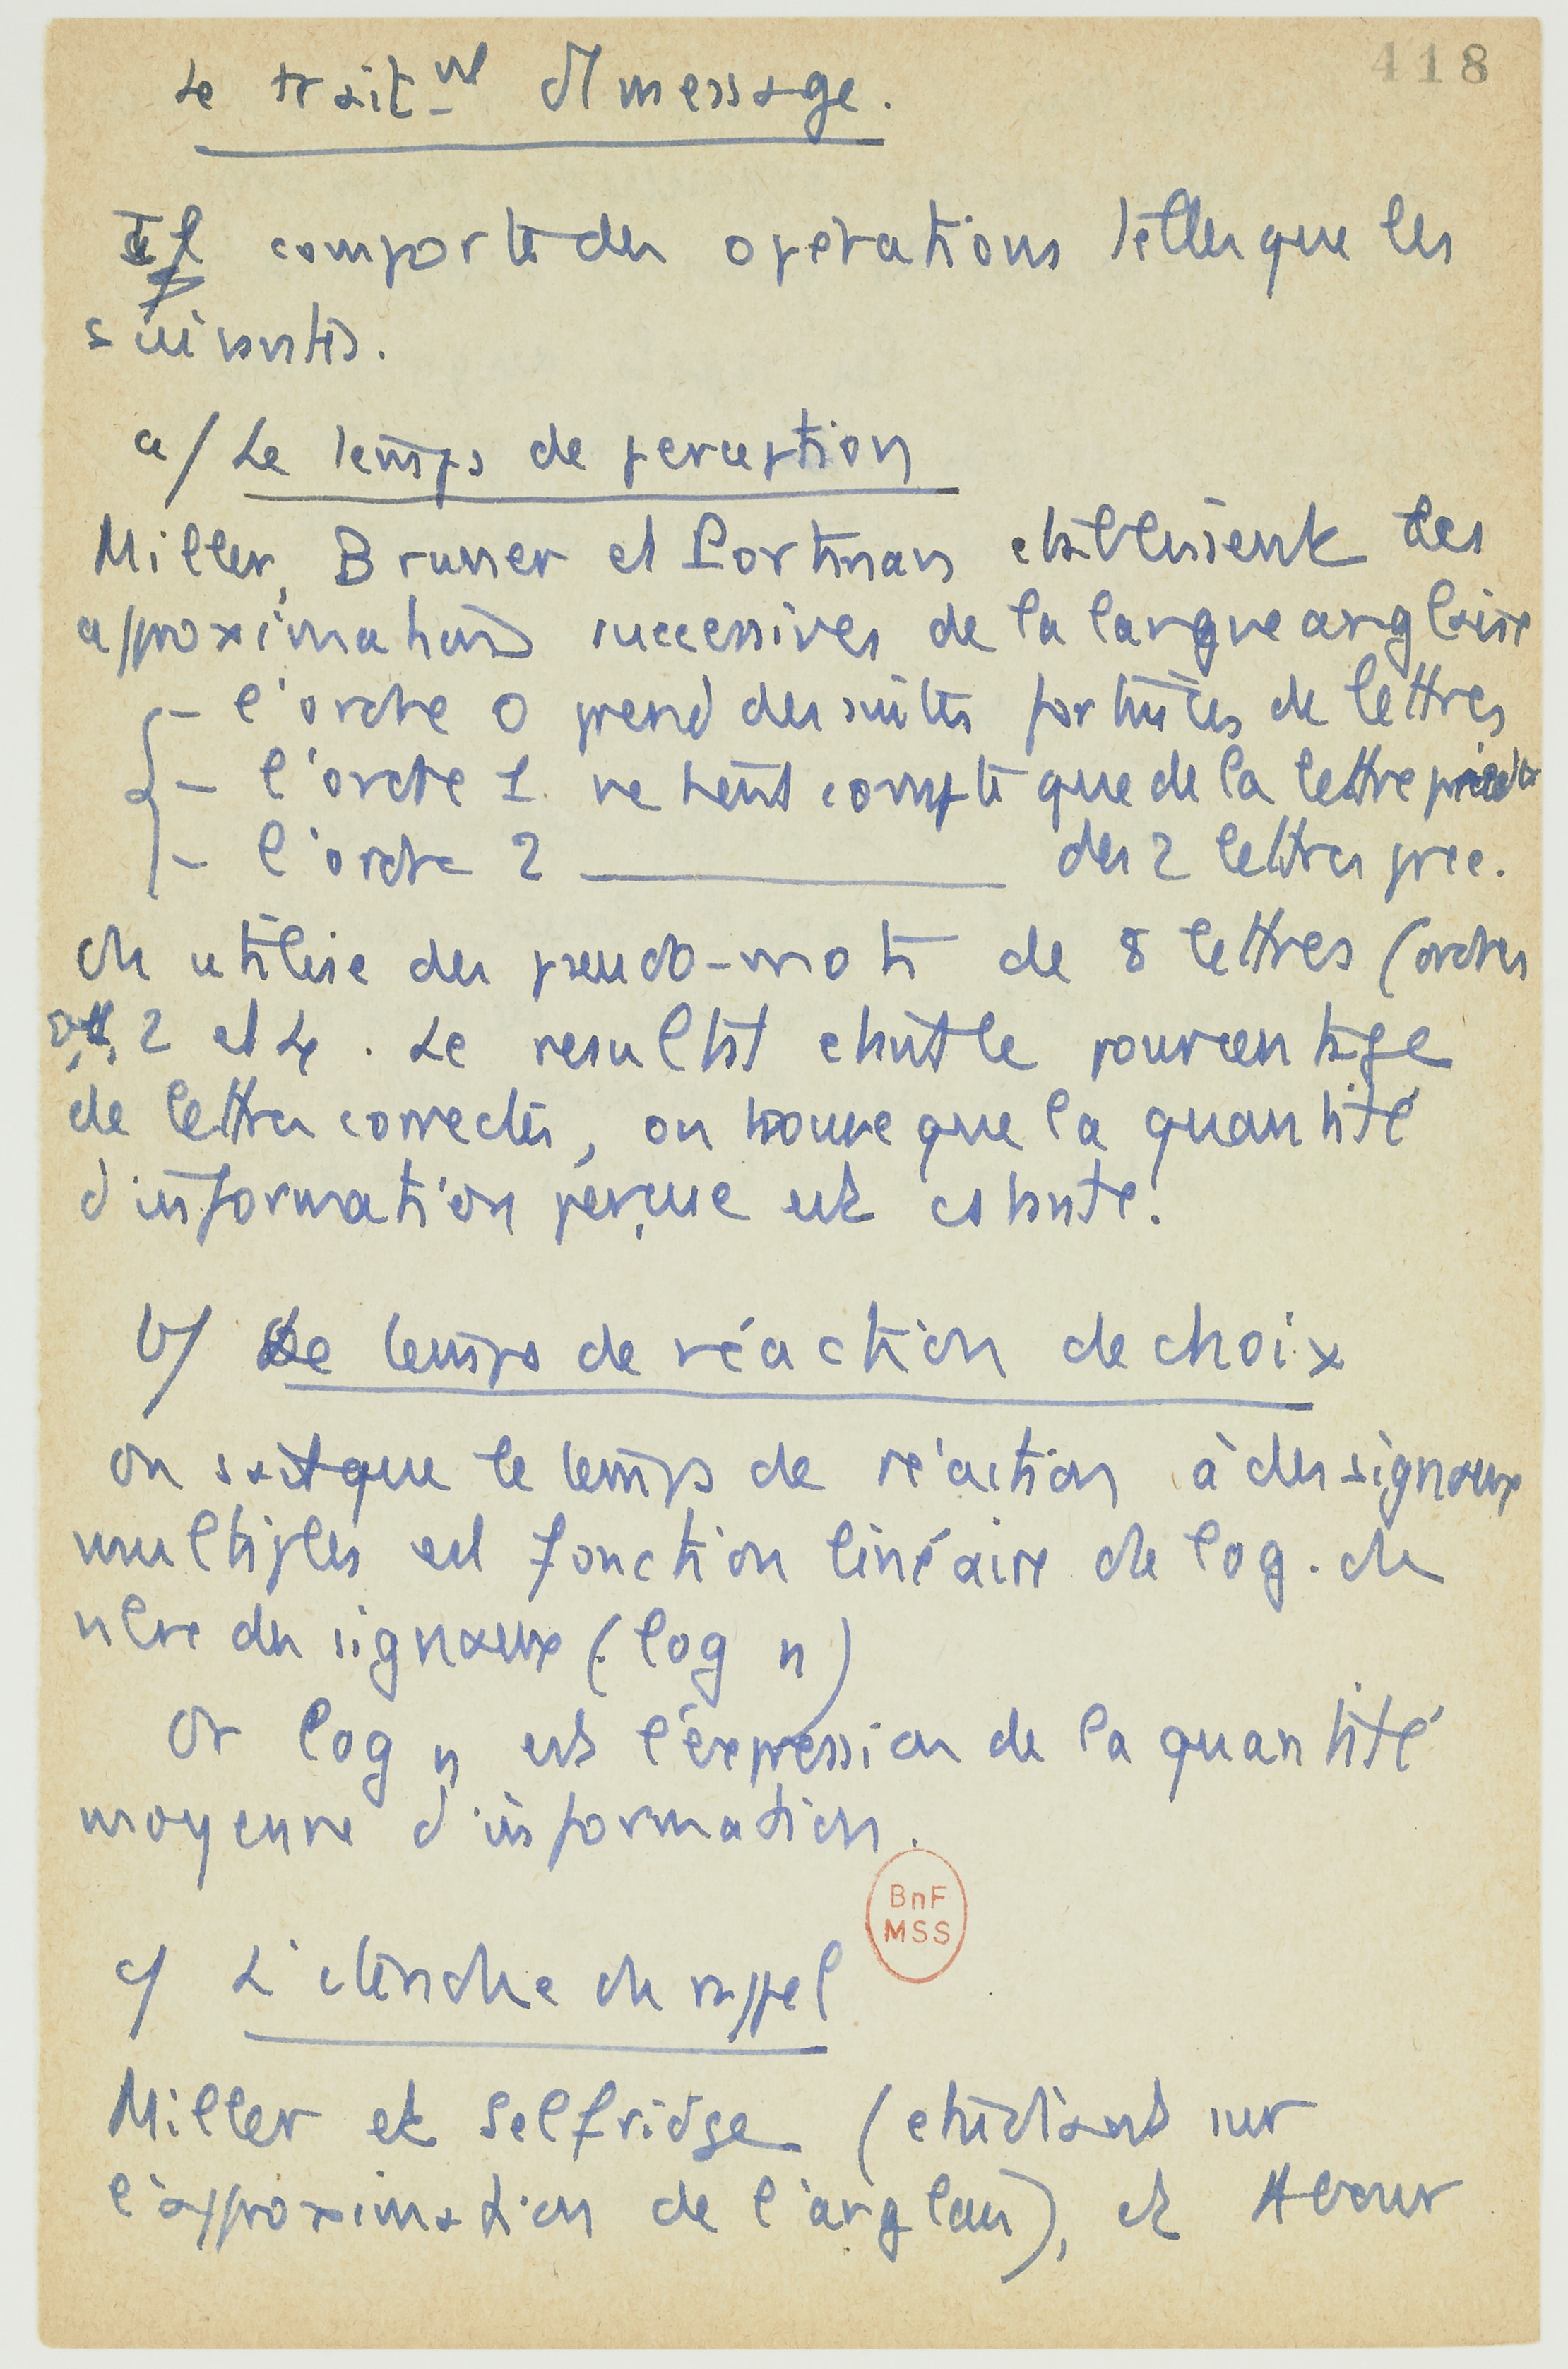 418
Le traitmt du message.
Il comporte des operations telles que les
suivantes.
a/ Le temps de perception
Miller, Bruner et Portman etablissent des
approximations successives de la langue anglaise
- l'ordre 0 prend des suites fortuites de lettres
- l'ordre 1 ne tient compte que de la lettre précédte
- l'ordre 2 ______ des 2 lettres prec.
On utilise des pseudo-mots de 8 lettres (ordres
0, 1, 2 et 4. Le resultat etant le pourcentage
de lettres correctes, on trouve que la quantité
d'information perçue est cstante.
b/ Le temps de réaction de choix
On sait que le temps de réaction à des signaux
multiples est fonction linéaire de log. du
nbre des signaux (log n)
Or log n est l'expression de la quantité
moyenne d'information.
BnF
MSS
c/ L'étendue du rappel
Miller et Selfridge (etudiant sur
l'approximation de l'anglais), et